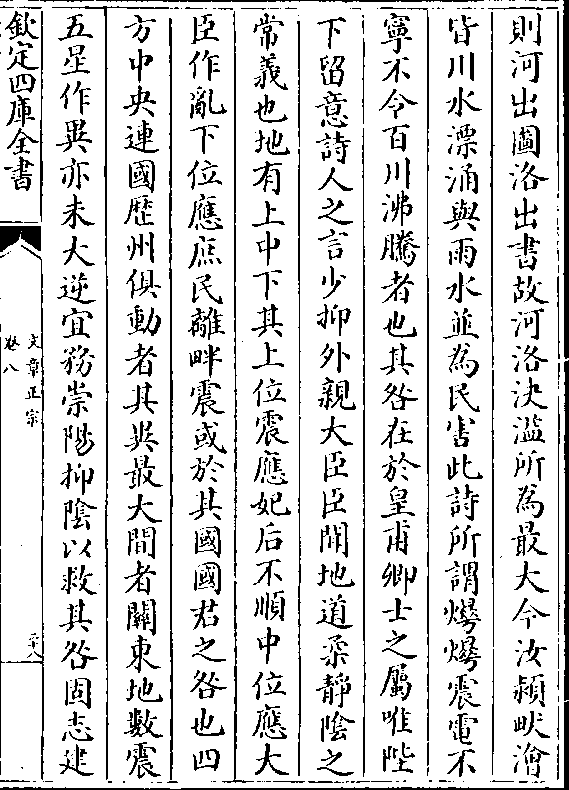 則河出圖洛出書故河洛決溢所為最大今汝潁畎澮
皆川水漂涌與雨水並為民害此詩所謂爗爗震電不
寧不令百川沸騰者也其咎在於皇甫卿士之屬唯陛
下留意詩人之言少抑外親大臣臣聞地道柔靜陰之
常義也地有上中下其上位震應妃后不順中位應大
臣作亂下位應庶民離畔震或於其國國君之咎也四
方中央連國歷州俱動者其異最大間者關東地數震
五星作異亦未大逆宜務崇陽抑陰以救其咎固志建
欽定四庫全書
文章正宗
卷八
二十八